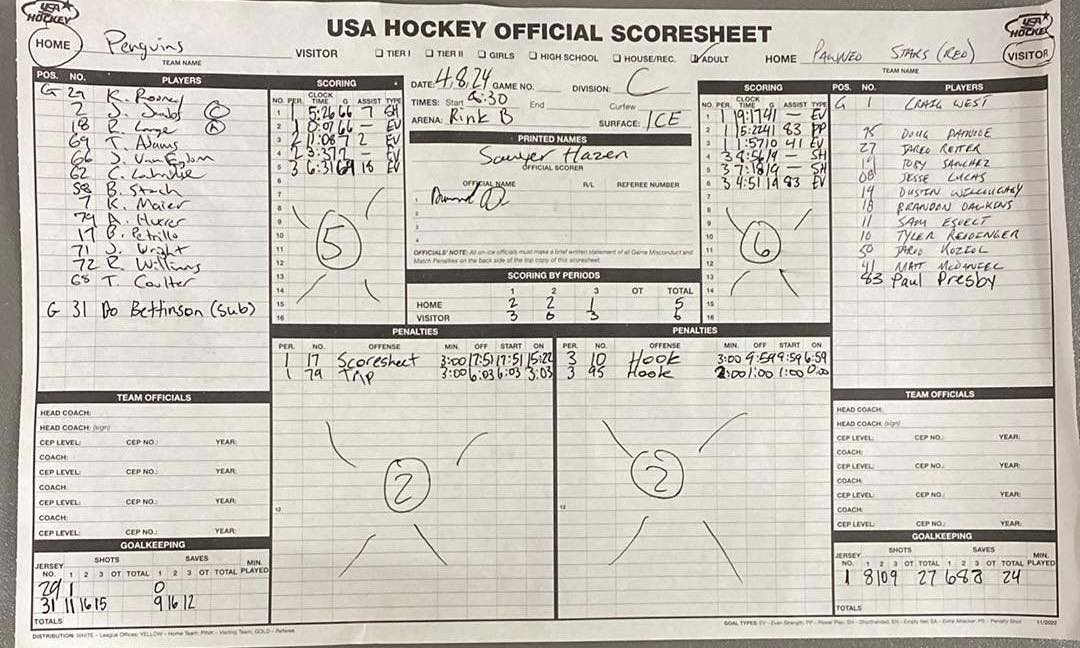 USA HOCKEY
USA HOCKEY OFFICIAL SCORESHEET
USA HOCKEY
HOME Penguins VISITOR TIER I TIER II GIRLS HIGH SCHOOL HOUSE/REC. ADULT HOME PAWNED STARS (RED) VISITOR
TEAM NAME
TEAM NAME
POS. NO. PLAYERS
G 29 K. Rooney
2 J. C
18 R. Lange A
69 T. Adams
66 J.
62 C.
58 B. Stach
7 K. Maier
79 A.
17 B. Petrillo
71 J. Wright
72 R. Williams
68 T. Coulter
G 31 Bo Bettinson (sub)
SCORING
NO. PER. CLOCK TIME G ASSIST TYPE
1 1 5:26 66 7 SH
2 1 0:07 66 — EV
3 2 11:08 7 2 EV
4 2 3:37 — EV
5 3 6:31 69 18 EV
6
7
8
9
10
11
12
13
14
15
16
5
DATE: 4.8.24 GAME NO. DIVISION: C
TIMES: Start 8:30 End Curfew
ARENA: Rink B SURFACE: ICE
PRINTED NAMES
Sawyer Hazen
OFFICIAL SCORER
OFFICIAL NAME R/L REFEREE NUMBER
1
2
3
4
OFFICIALS' NOTE: All on-ice officials must make a brief written statement of all Game Misconduct and
Match Penalties on the back side of the top copy of this scoresheet.
SCORING BY PERIODS
1 2 3 OT TOTAL
HOME 2 2 1 5
VISITOR 3 0 3 6
SCORING
NO. PER. CLOCK TIME G ASSIST TYPE
1 1 19:17 41 — EV
2 1 15:22 41 83 PP
3 1 1:57 10 41 EV
4 3 8:56 19 — SH
5 3 7:18 19 — SH
6 3 4:51 19 83 EV
7
8
9
10
11
12
13
14
15
16
6
POS. NO. PLAYERS
G 1 CRAIG WEST
95 DOUG
27 JARED RETTER
19 TOBY SANCHEZ
08 JESSE LUCAS
14 DUSTIN WILLOUGHBY
18 BRANDON DAWKINS
11 SAM
10 TYLER REIDENGER
50 JARED KOZIOL
41 MATT MCDANIEL
83 Paul Presby
PENALTIES
PER. NO. OFFENSE MIN. OFF START ON
1 17 Scoresheet 3:00 17:51 17:51 15:22
1 79 TRP 3:00 6:03 6:03 3:03
12
2
PENALTIES
PER. NO. OFFENSE MIN. OFF START ON
3 10 Hook 3:00 9:59 9:59 6:59
3 95 Hook 2:00 1:00 1:00 0:00
12
2
TEAM OFFICIALS
HEAD COACH:
HEAD COACH: (sign)
CEP LEVEL: CEP NO.: YEAR:
COACH:
CEP LEVEL: CEP NO.: YEAR:
COACH:
CEP LEVEL: CEP NO.: YEAR:
COACH:
CEP LEVEL: CEP NO.: YEAR:
TEAM OFFICIALS
HEAD COACH:
HEAD COACH: (sign)
CEP LEVEL: CEP NO.: YEAR:
COACH:
CEP LEVEL: CEP NO.: YEAR:
COACH:
CEP LEVEL: CEP NO.: YEAR:
COACH:
CEP LEVEL: CEP NO.: YEAR:
GOALKEEPING
SHOTS SAVES
JERSEY NO. 1 2 3 OT TOTAL 1 2 3 OT TOTAL MIN. PLAYED
29 1 0
31 11 16 15 9 16 12
TOTALS
GOALKEEPING
SHOTS SAVES
JERSEY NO. 1 2 3 OT TOTAL 1 2 3 OT TOTAL MIN. PLAYED
1 8 10 9 27 6 8 8 24
TOTALS
DISTRIBUTION: WHITE - League Offices; YELLOW - Home Team; PINK - Visiting Team; GOLD - Referee
GOAL TYPES: EV - Even Strength; PP - Power Play; SH - Shorthanded; EN - Empty Net; EA - Extra Attacker; PS - Penalty Shot 11/2022